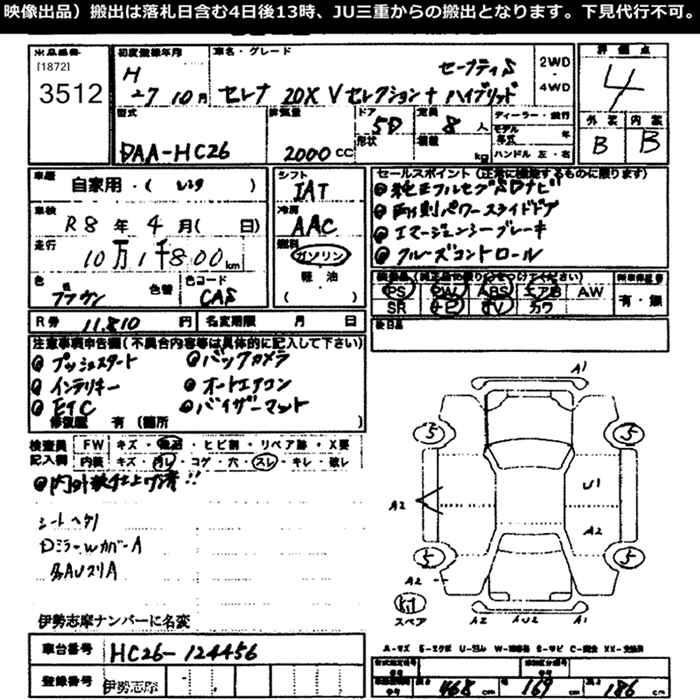 映像出品）搬出は落札日含む4日後13時、JU三重からの搬出となります。下見代行不可。
出品番号
[1872]
3512
初度登録年月
H
27 10月
車名・グレード
セーフティS
セレナ 20X Vセレクション+ハイブリッド
2WD
・
4WD
評価点
4
外装
B
内装
B
型式
DAA-HC26
排気量
2000 CC
ドア
形状
5D
定員
8 人
積載
kg
ディーラー・並行
モデル
年式
年
ハンドル 左・右
車歴
自家用・( レンタ )
車検
R8 年 4 月( 日)
走行
10万1千800 km
色
ブラウン
色替
色コード
CAS
シフト
IAT
冷房
AAC
燃料
ガソリン
軽 油
( )
R券 11.810 円
名変期限 月 日
セールスポイント（正常に機能するものに限ります）
純正フルセグSDナビ
両側パワースライドドア
エマージェンシーブレーキ
クルーズコントロール
PS PW ABS エアB AW
SR ナビ TV カワ
有・無
後日品
注意事項申告欄（不具合内容等は具体的に記入して下さい）
プッシュスタート
バックカメラ
インテリキー
オートエアコン
ETC
バイザーマット
修復歴 有（箇所
検査員
記入欄
FW キズ・飛石・ヒビ割・リペア跡・X要
内装 キズ・汚レ・コゲ・穴・スレ・キレ・破レ
内外装仕上ゲ済!!
シートヘタリ
DミラーWカバーA
多AUスリA
伊勢志摩ナンバーに名変
A1
5
5
U1
A2
A2
5
5
A2
スペア
A2
AU2
A1
A-キズ
車台番号
HC26-124456
登録番号
伊勢志摩
長さ 468 cm
幅 169 cm
高さ 186 cm